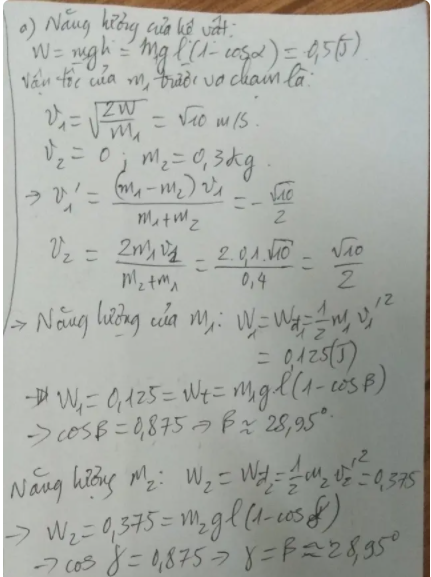 a) Năng lượng của hệ vật:
W = mgh = mgl(1-cosα) = 0,5(J)
Vận tốc của m₁ trước va chạm là:
v₁ = √(2W/m₁) = √10 m/s.
v₂ = 0 ; m₂ = 0,3kg.
→ v₁' = (m₁-m₂)v₁/(m₁+m₂) = -√10/2
v₂ = 2m₁v₁/(m₂+m₁) = 2.0,1.√10/0,4 = √10/2
→ Năng lượng của m₁: W₁ = Wđ₁ = 1/2 m₁v₁'²
= 0,125(J)
→ W₁ = 0,125 = Wt = m₁gl(1-cosβ)
→ cosβ = 0,875 → β ≈ 28,95°
Năng lượng m₂: W₂ = Wđ₂ = 1/2 m₂v₂'² = 0,375
→ W₂ = 0,375 = m₂gl(1-cosγ)
→ cosγ = 0,875 → γ = β ≈ 28,95°